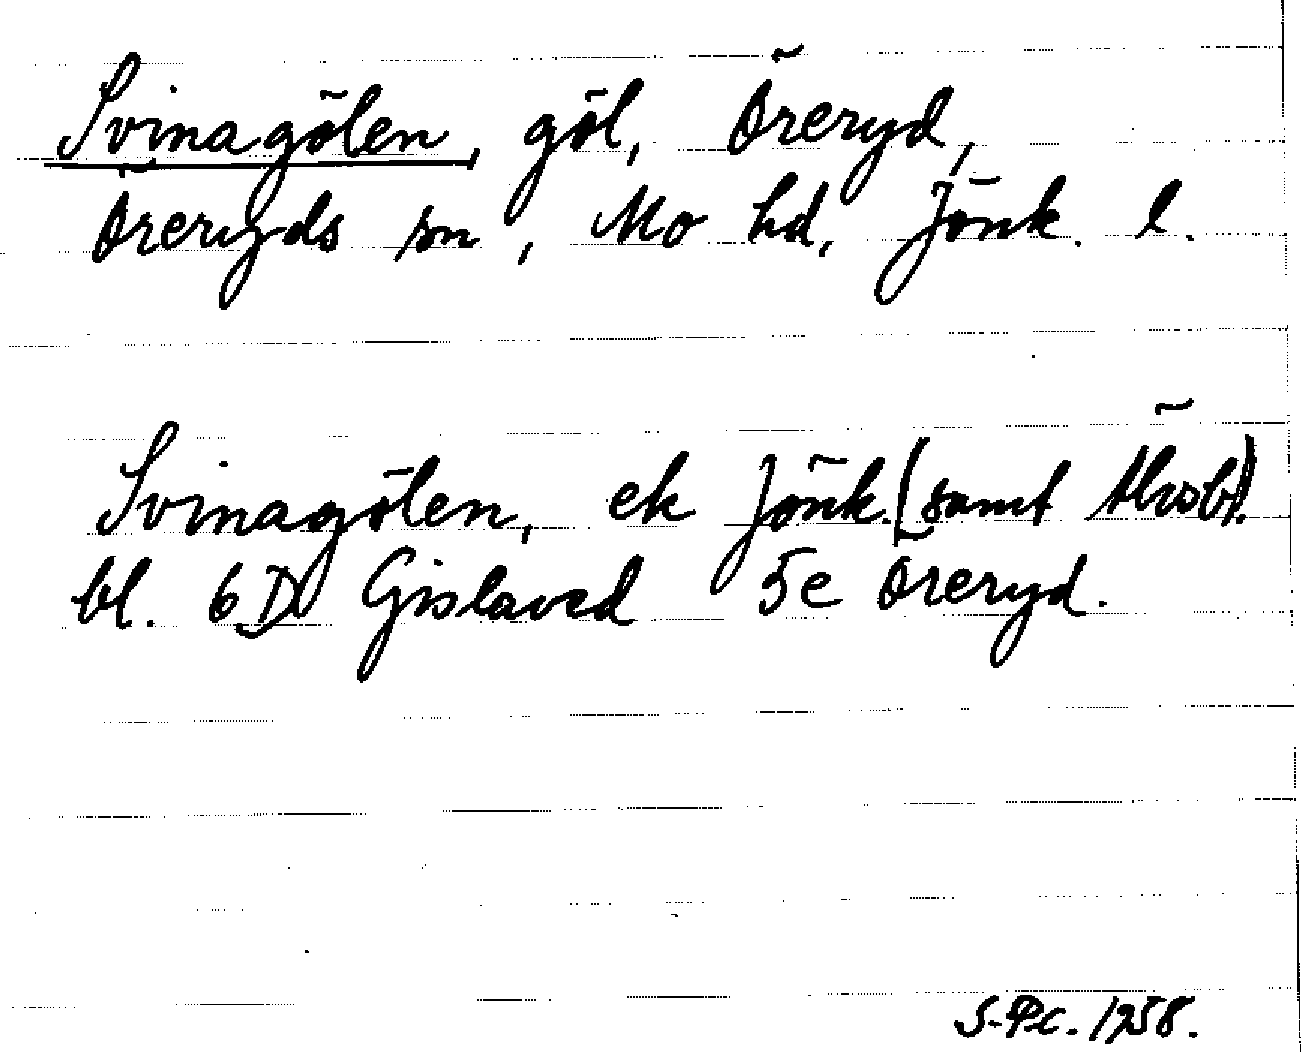 Svinagölen, göl, Öreryd,
Öreryds sn, Mo hd, Jönk. l.
Svinagölen, ek Jönk. (samt Älvsb).
bl. 6D Gislaved 5e Öreryd.
S-Pc. 1958.